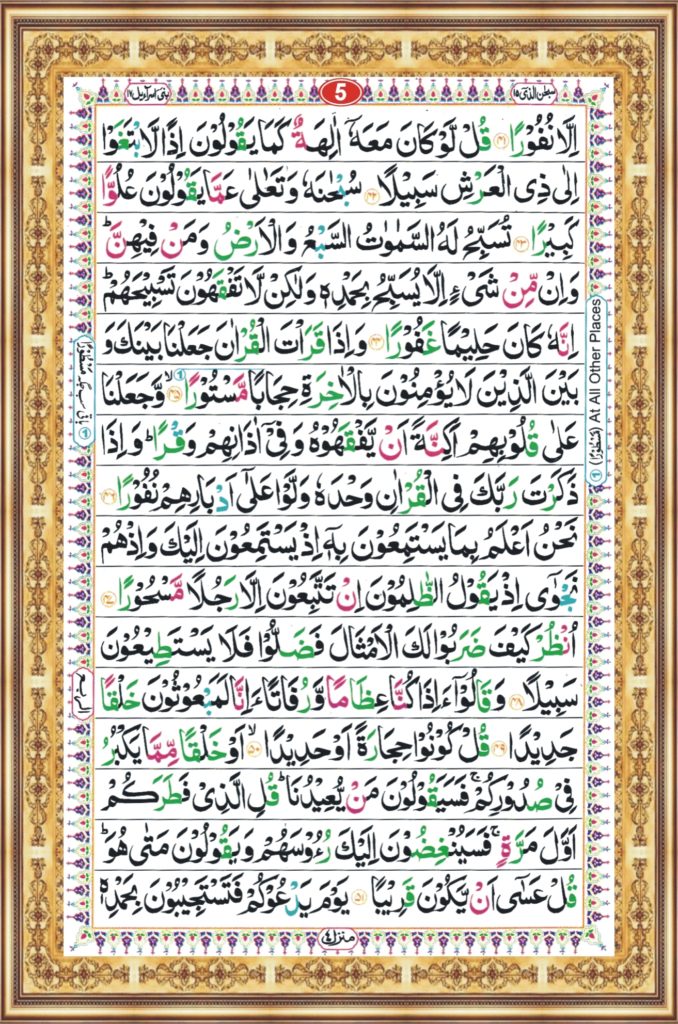 سبحن الذی ١٥
5
بنی اسرآءیل ١٧
اِلَّا نُفُوْرًا ﴿٤١﴾ قُلْ لَّوْ كَانَ مَعَهٗۤ اٰلِهَةٌ كَمَا يَقُوْلُوْنَ اِذًا لَّابْتَغَوْا
اِلٰى ذِى الْعَرْشِ سَبِيْلًا ﴿٤٢﴾ سُبْحٰنَهٗ وَتَعٰلٰى عَمَّا يَقُوْلُوْنَ عُلُوًّا
كَبِيْرًا ﴿٤٣﴾ تُسَبِّحُ لَهُ السَّمٰوٰتُ السَّبْعُ وَالْاَرْضُ وَمَنْ فِيْهِنَّ ؕ
وَاِنْ مِّنْ شَىْءٍ اِلَّا يُسَبِّحُ بِحَمْدِهٖ وَلٰكِنْ لَّا تَفْقَهُوْنَ تَسْبِيْحَهُمْ ؕ
اِنَّهٗ كَانَ حَلِيْمًا غَفُوْرًا ﴿٤٤﴾ وَاِذَا قَرَاْتَ الْقُرْاٰنَ جَعَلْنَا بَيْنَكَ وَ
بَيْنَ الَّذِيْنَ لَا يُؤْمِنُوْنَ بِالْاٰخِرَةِ حِجَابًا مَّسْتُوْرًا ۙ﴿٤٥﴾ وَّجَعَلْنَا
عَلٰى قُلُوْبِهِمْ اَكِنَّةً اَنْ يَّفْقَهُوْهُ وَفِىْۤ اٰذَانِهِمْ وَقْرًا ؕ وَاِذَا
ذَكَرْتَ رَبَّكَ فِى الْقُرْاٰنِ وَحْدَهٗ وَلَّوْا عَلٰٓى اَدْبَارِهِمْ نُفُوْرًا ﴿٤٦﴾
نَحْنُ اَعْلَمُ بِمَا يَسْتَمِعُوْنَ بِهٖۤ اِذْ يَسْتَمِعُوْنَ اِلَيْكَ وَاِذْ هُمْ
نَجْوٰٓى اِذْ يَقُوْلُ الظّٰلِمُوْنَ اِنْ تَتَّبِعُوْنَ اِلَّا رَجُلًا مَّسْحُوْرًا ﴿٤٧﴾
اُنْظُرْ كَيْفَ ضَرَبُوْا لَكَ الْاَمْثَالَ فَضَلُّوْا فَلَا يَسْتَطِيْعُوْنَ
سَبِيْلًا ﴿٤٨﴾ وَقَالُوْٓا ءَاِذَا كُنَّا عِظَامًا وَّرُفَاتًا ءَاِنَّا لَمَبْعُوْثُوْنَ خَلْقًا
جَدِيْدًا ﴿٤٩﴾ قُلْ كُوْنُوْا حِجَارَةً اَوْ حَدِيْدًا ۙ﴿٥٠﴾ اَوْ خَلْقًا مِّمَّا يَكْبُرُ
فِىْ صُدُوْرِكُمْ ۚ فَسَيَقُوْلُوْنَ مَنْ يُّعِيْدُنَا ؕ قُلِ الَّذِىْ فَطَرَكُمْ
اَوَّلَ مَرَّةٍ ۚ فَسَيُنْغِضُوْنَ اِلَيْكَ رُءُوْسَهُمْ وَيَقُوْلُوْنَ مَتٰى هُوَ ؕ
قُلْ عَسٰٓى اَنْ يَّكُوْنَ قَرِيْبًا ﴿٥١﴾ يَوْمَ يَدْعُوْكُمْ فَتَسْتَجِيْبُوْنَ بِحَمْدِهٖ
منزل ٤
① (مَسْطُوْرًا) At All Other Places
① باقی سب جگہ مَسْطُوْرًا
الربع